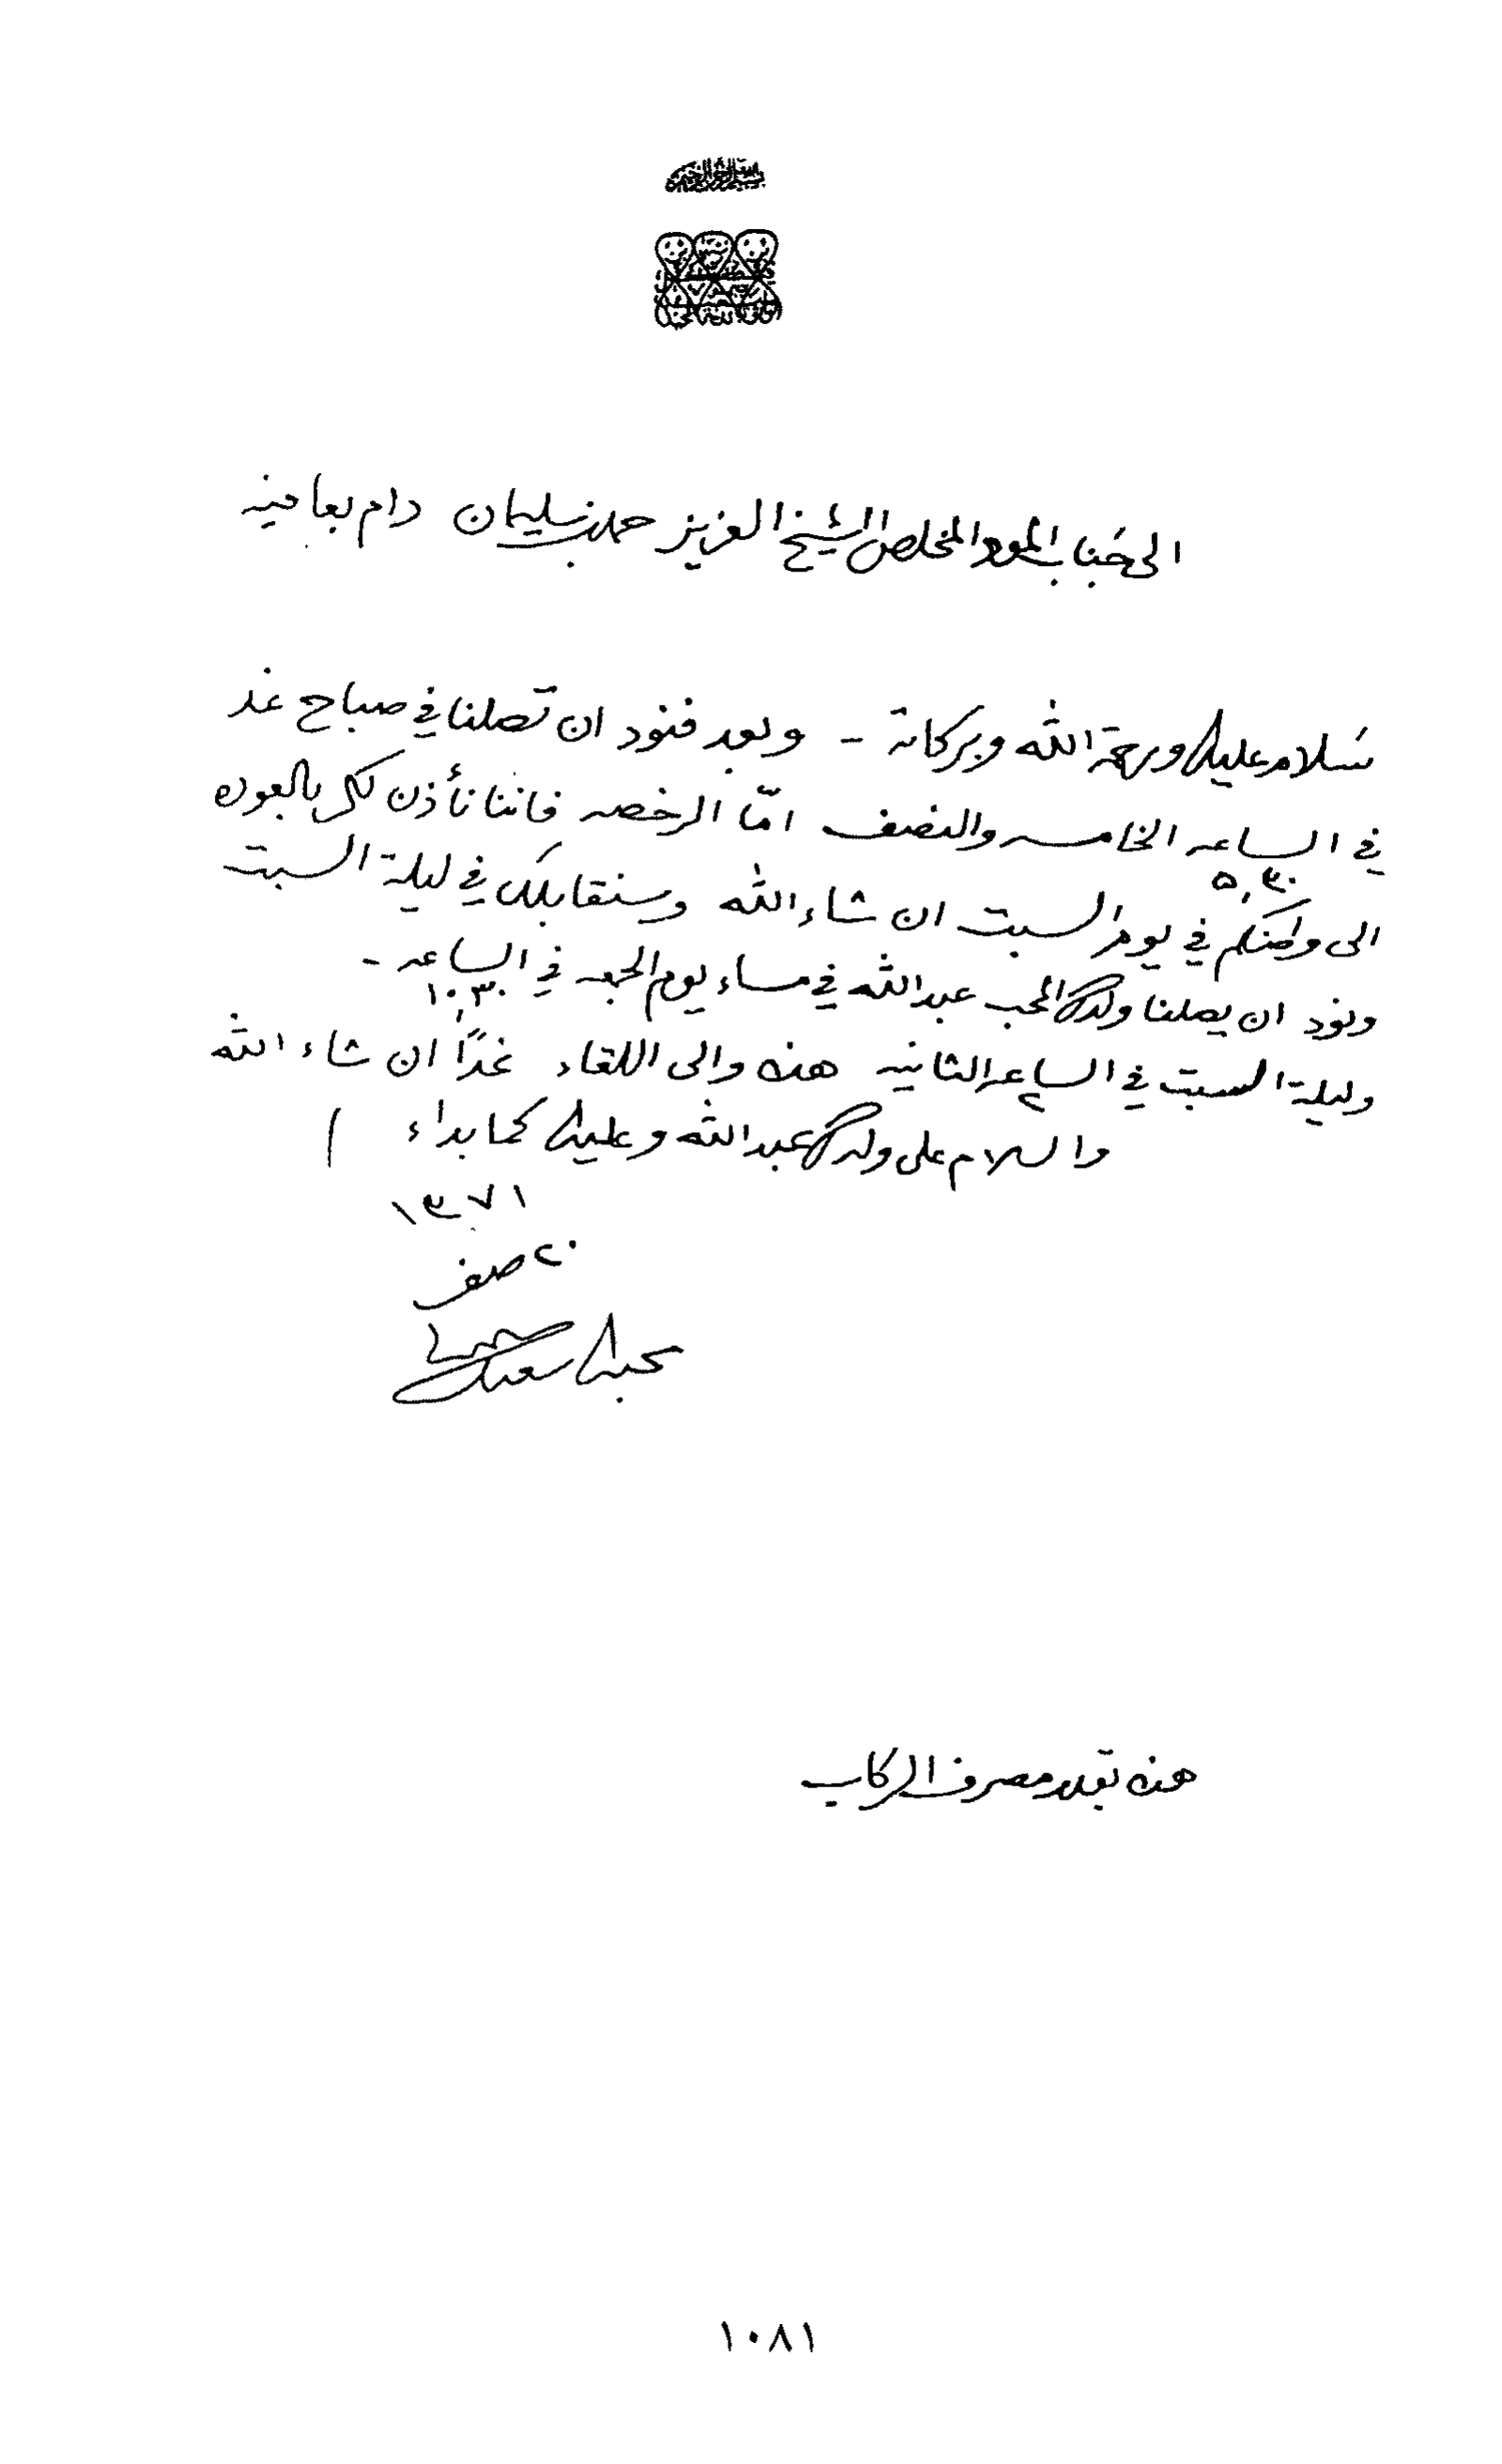 الى جناب المود المخلص الشيخ العزيز حمد بن سليمان دام بعافيه
سلام عليك ورحمة الله وبركاته - وبعد فنود ان تصلنا في صباح غد
في الساعه الخامسه والنصف امّا الرخصه فاننا نأذن لك بالعوده
٥,٣٠
الى وطنكم في يوم السبت ان شاء الله وسنقابلك في ليلة السبت
ونود ان يصلنا ولدك المحب عبدالله في مساء يوم الجمعه في الساعه -
١٠,٣٠
وليلة السبت في الساعه الثانيه هذه والى اللقاء غدًا ان شاء الله
٢
والسلام على ولدك عبدالله وعليك كما بداء
١٣٧١
٢٠ صفر
محبك سعيد
هذه بقدر مصرف الركاب
١٠٨١